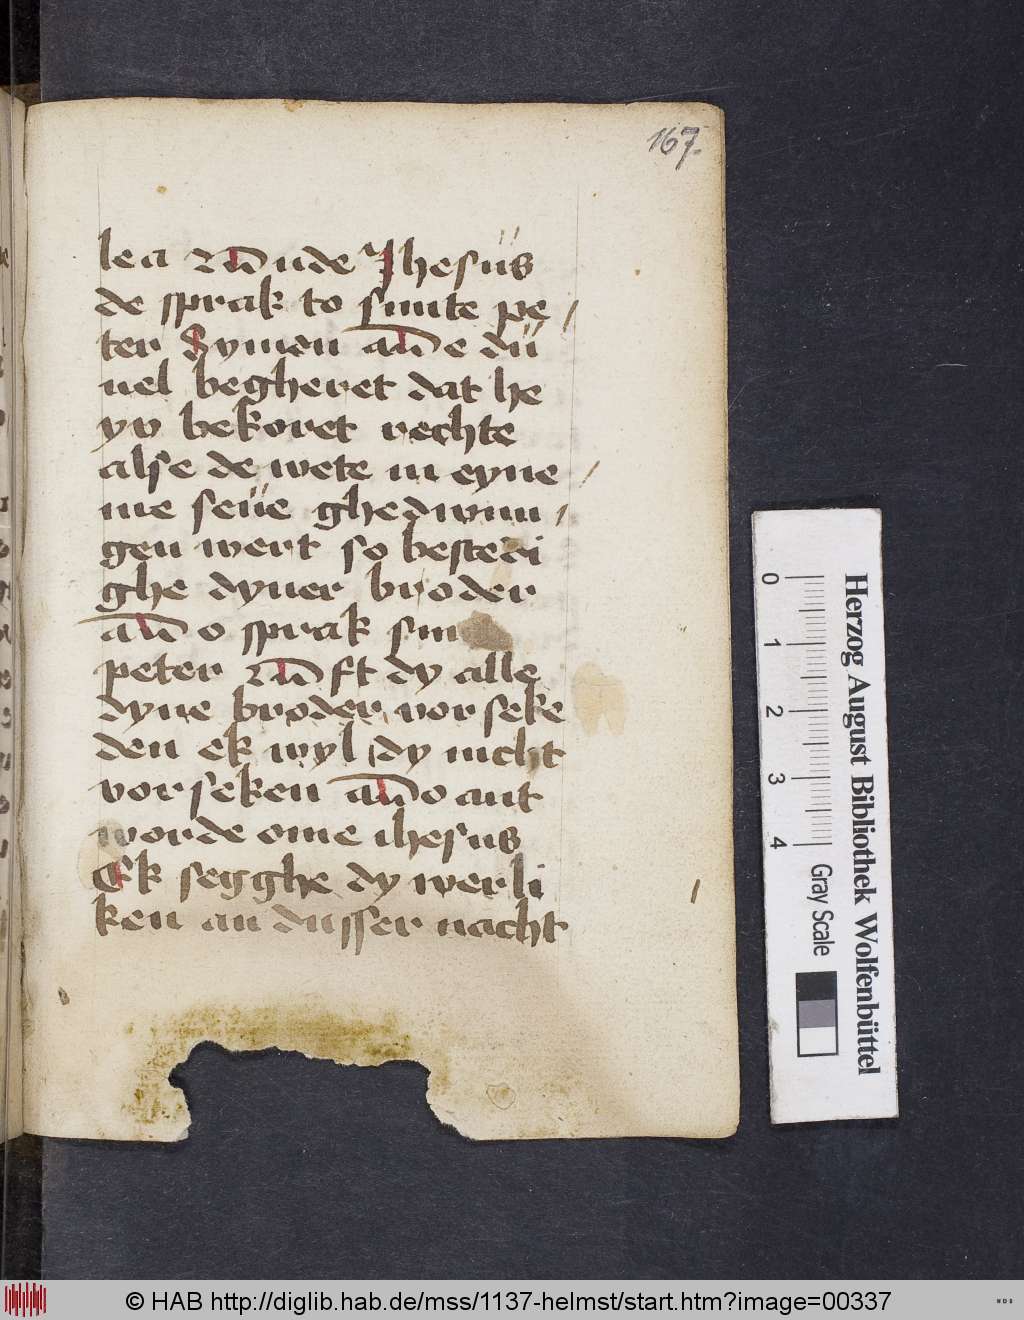 167.
lea vnde Jhesüs
de sprak to sunte pe
ter Symen de dü
uel begheret dat he
yv bekoret rechte
alse de wete in eyne
me seüe ghedwun
gen wert so besteri
ghe dyner broder
Do sprak sun
peter Vft dy alle
dyne broder vor seke
den ek wyl dy nicht
vor seken Do ant
worde ome ihesus
Ek segghe dy werli
ken an dusser nacht
Herzog August Bibliothek Wolfenbüttel
0 1 2 3 4
Gray Scale
© HAB http://diglib.hab.de/mss/1137-helmst/start.htm?image=00337